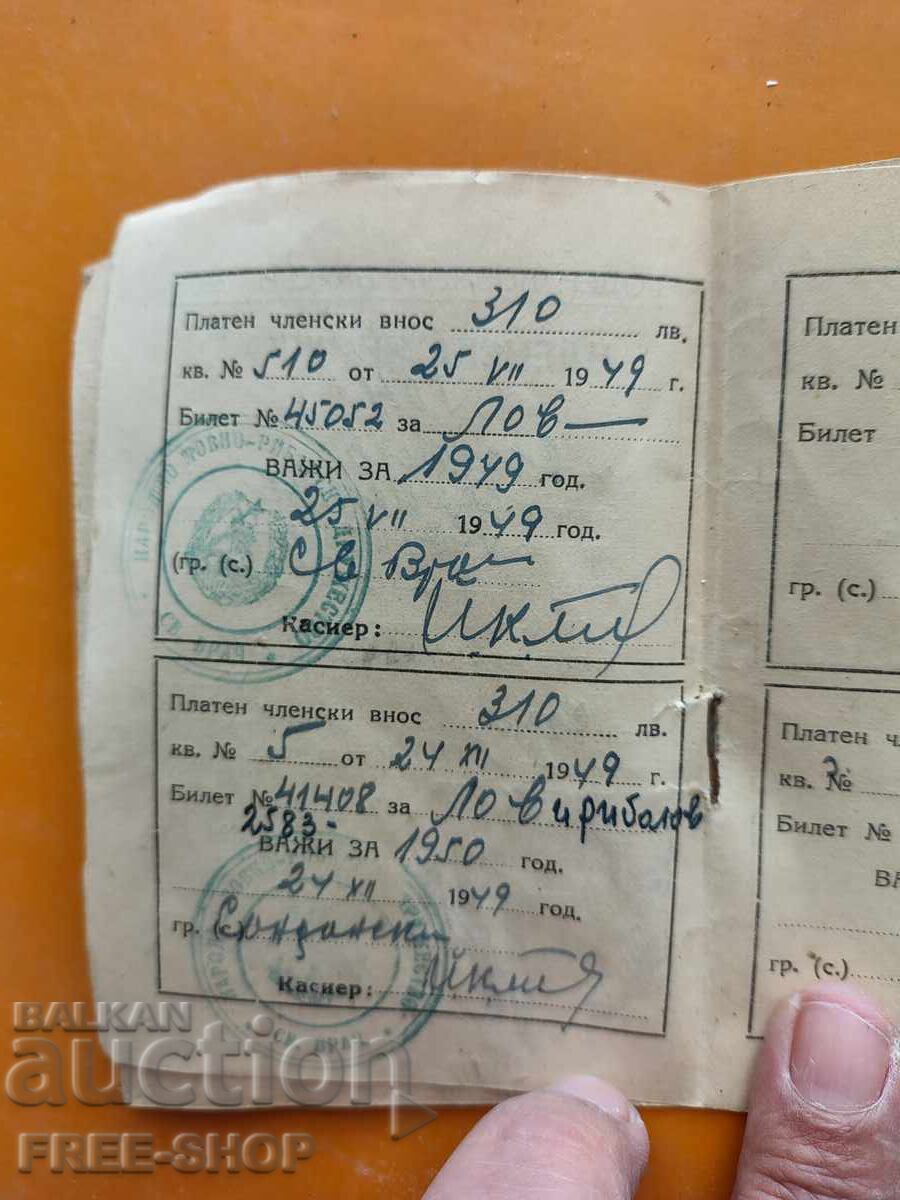 Платен членски внос 310 лв.
кв. № 510 от 25 VII 1949 г.
Билет № 45052 за Лов —
ВАЖИ ЗА 1949 год.
25 VII 1949 год.
(гр. (с.) Св Врач
Касиер:
НАРОДНО ЛОВНО-РИБ. ДРУЖЕСТВО
СВ. ВРАЧ
Платен членски внос 310 лв.
кв. № 5 от 24 XII 1949 г.
Билет № 41408 за Лов и риболов
2583-
ВАЖИ ЗА 1950 год.
24 XII 1949 год.
гр. (с.) Сандански
Касиер:
СВ. ВРАЧ
Платен
кв. №
Билет
гр. (с.)
Платен чл
кв. №
Билет №
ВА
гр. (с.)
BALKAN
auction
FREE-SHOP